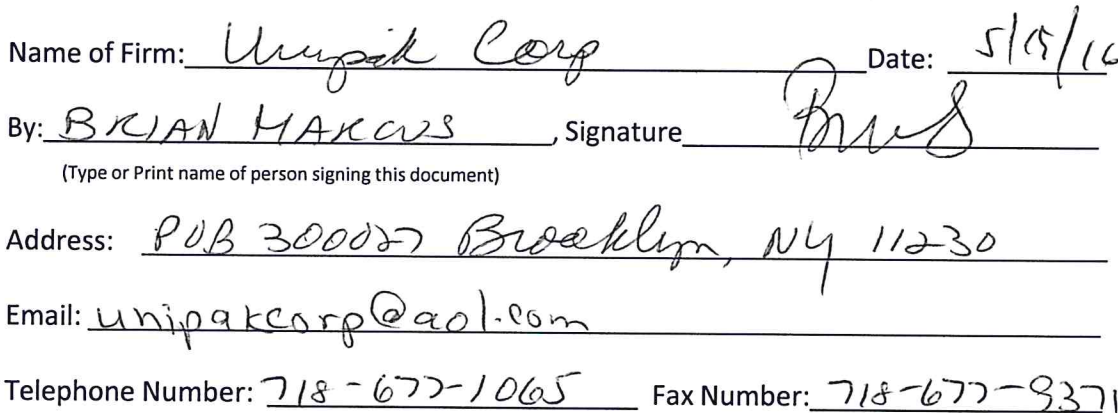 Name of Firm: Unipak Corp Date: 5/15/16
By: BRIAN MARCUS, Signature
(Type or Print name of person signing this document)
Address: POB 300027 Brooklyn, NY 11230
Email: unipakcorp@aol.com
Telephone Number: 718-677-1065 Fax Number: 718-677-9371